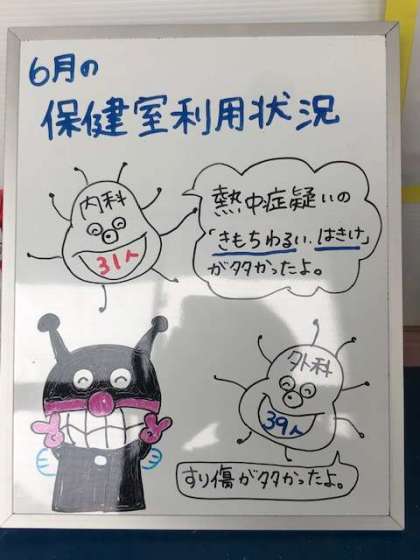 6月の
保健室利用状況
内科
31人
熱中症疑いの
「きもちわるい、はきけ」
が多かったよ。
外科
39人
すり傷が多かったよ。